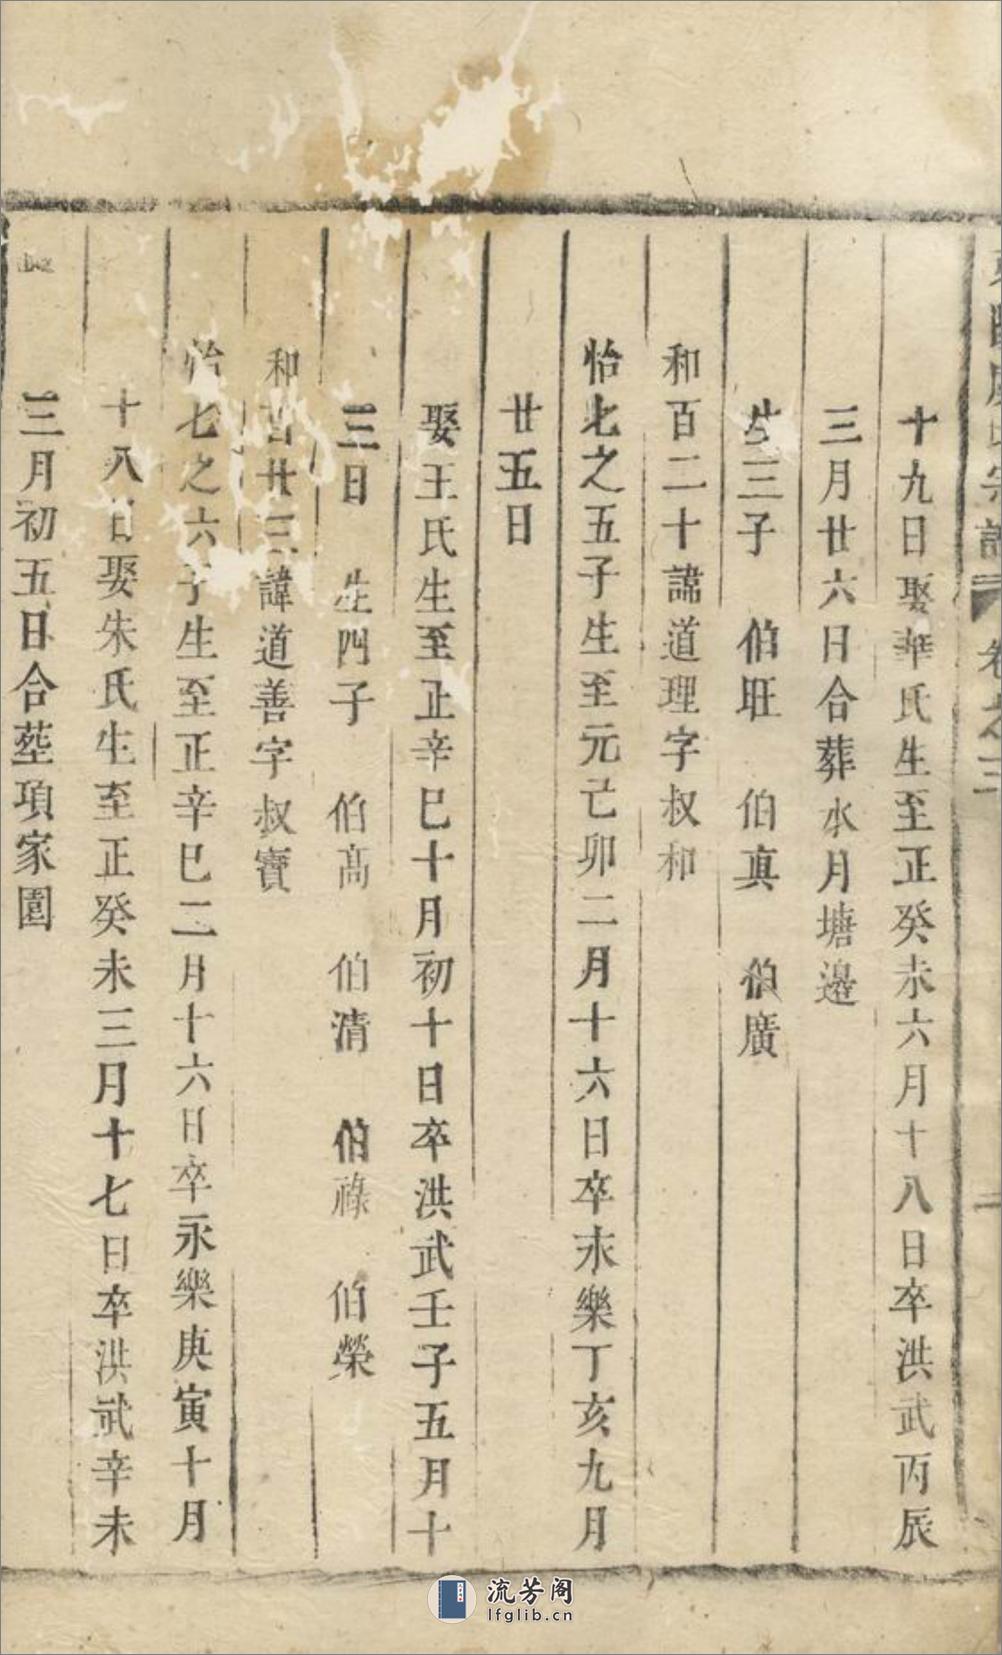 宗譜 卷之三
十九日娶華氏生至正癸未六月十八日卒洪武丙辰
三月廿六日合葬水月塘邊
生三子 伯旺 伯真 伯廣
和百二十諱道理字叔和
怡七之五子生至元己卯二月十六日卒永樂丁亥九月
廿五日
娶王氏生至正辛巳十月初十日卒洪武壬子五月十
三日 生四子 伯高 伯清 伯祿 伯榮
和百廿三諱道善字叔寶
怡七之六子生至正辛巳二月十六日卒永樂庚寅十月
十八日娶朱氏生至正癸未三月十七日卒洪武辛未
三月初五日合塟項家園
流芳阁
lfglib.cn